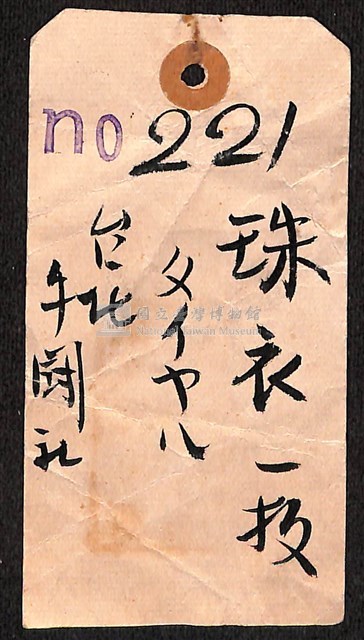 no 221
珠衣一扱
タイヤル
台北
牛闘社
國立臺灣大學博物館
National Taiwan Museum